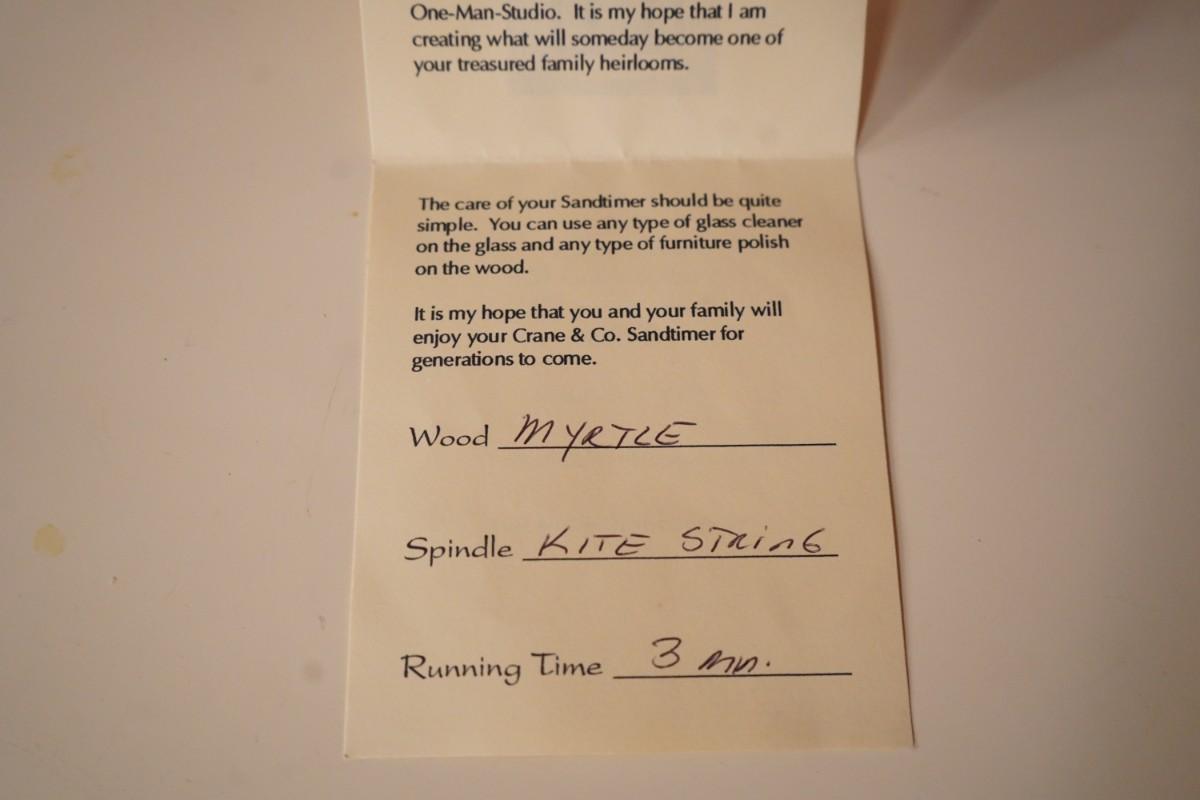 One-Man-Studio. It is my hope that I am
creating what will someday become one of
your treasured family heirlooms.
The care of your Sandtimer should be quite
simple. You can use any type of glass cleaner
on the glass and any type of furniture polish
on the wood.
It is my hope that you and your family will
enjoy your Crane & Co. Sandtimer for
generations to come.
Wood MYRTLE
Spindle KITE STRING
Running Time 3 min.